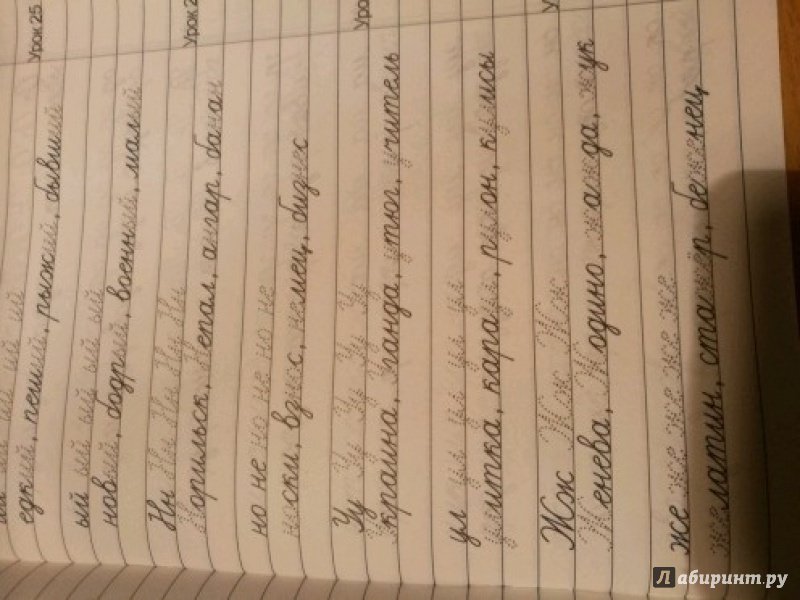 Урок 25
ий ий ий ий
едкий, пеший, рыжий, бывший
ый ый ый ый ый
новый, бодрый, военный, малый
Урок 2
Нн Нн Нн Нн Нн
Норильск, Непал, ангар, банан
но не но не но не
носки, взнос, немец, бизнес
Уро
Уу Уу Уу Уу Уу
Украина, Уганда, утюг, учитель
ул ул ул ул ул
улитка, караул, рулон, кулисы
У
Жж Жж Жж Жж
Женева, Жодино, жажда, жук
же же же же же
желатин, стажёр, беженец
Лабиринт.ру